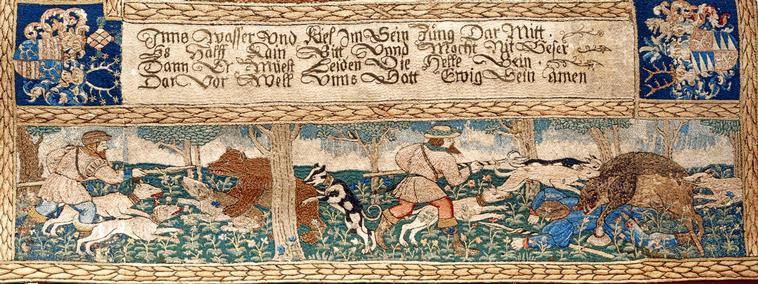 Inns Wasser Vnd Rief Im Sein Züng Dar Mitt.
Es Halff Kain Bitt Vnnd Mocht Nit Beser
Dann Er Müest Leiden Die Helle Bein.
Dar Vor Well Vnns Gott Ewig Sein amen